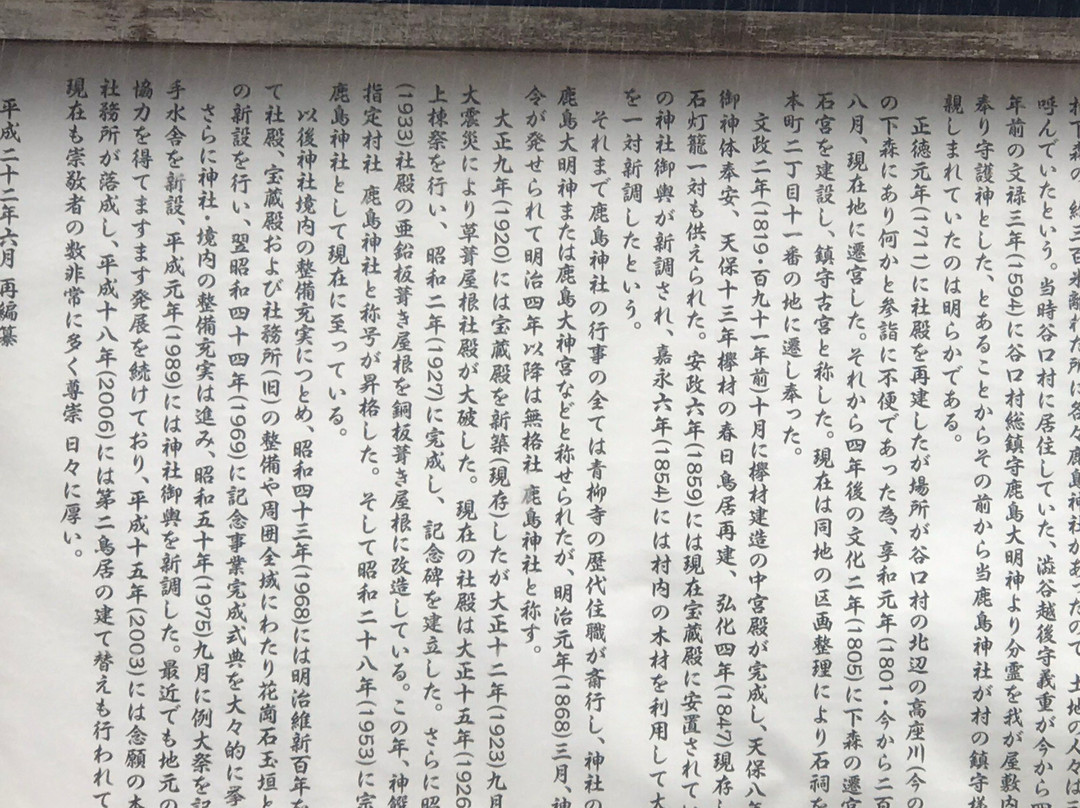 相下森の、約三百米離れた所に各々鹿島神社があったので、土地の人々は
呼んでいたという。当時谷口村に居住していた、澁谷越後守義重が今から
年前の文禄三年(1594)に谷口村総鎮守鹿島大明神より分霊を我が屋敷
奉り守護神とした、とあることからその前から当鹿島神社が村の鎮守様
親しまれていたのは明らかである。
正徳元年(1711)に社殿を再建したが場所が谷口村の北辺の高座川(今の
の下森にあり何かと参詣に不便であった為、享和元年(1801・今から二百
八月、現在地に遷宮した。それから四年後の文化二年(1805)に下森の遷宮
石宮を建設し、鎮守古宮と称した。現在は同地の区画整理により石祠を
本町二丁目十一番の地に遷し奉った。
文政二年(1819・百九十一年前)十月に欅材建造の中宮殿が完成し、天保八年
御神体奉安、天保十三年欅材の春日鳥居再建、弘化四年(1847)現存し
石灯籠一対も供えられた。安政六年(1859)には現在宝蔵殿に安置されてい
の神社御輿が新調され、嘉永六年(1854)には村内の木材を利用して大
を一対新調したという。
それまで鹿島神社の行事の全ては青柳寺の歴代住職が斎行し、神社の
鹿島大明神または鹿島大神宮などと称せられたが、明治元年(1868)三月、神
令が発せられて明治四年以降は無格社 鹿島神社と称す。
大正九年(1920)には宝蔵殿を新築(現存)したが大正十二年(1923)九月
大震災により草葺屋根社殿が大破した。現在の社殿は大正十五年(1926
上棟祭を行い、昭和二年(1927)に完成し、記念碑を建立した。さらに昭
(1933)社殿の亜鉛板葺き屋根を銅板葺き屋根に改造している。この年、神饌
指定村社 鹿島神社と称号が昇格した。そして昭和二十八年(1953)に宗
鹿島神社として現在に至っている。
以後神社境内の整備充実につとめ、昭和四十三年(1968)には明治維新百年を
て社殿、宝蔵殿および社務所(旧)の整備や周囲全域にわたり花崗石玉垣と
の新設を行い、翌昭和四十四年(1969)に記念事業完成式典を大々的に挙
さらに神社・境内の整備充実は進み、昭和五十年(1975)九月に例大祭を記
手水舎を新設、平成元年(1989)には神社御輿を新調した。最近でも地元の
協力を得てますます発展を続けており、平成十五年(2003)には念願の本
社務所が落成し、平成十八年(2006)には第二鳥居の建て替えも行われて
現在も崇敬者の数非常に多く尊崇 日々に厚い。
平成二十二年六月 再編纂